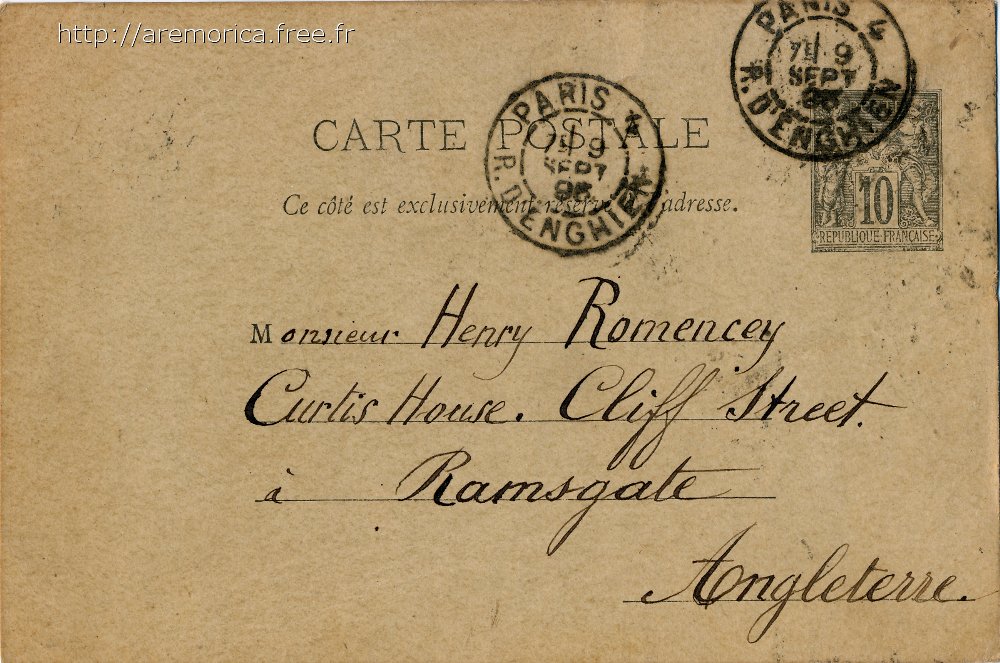 http://aremorica.free.fr
PARIS 4
9
SEPT
R. D'ENGHIEN
PARIS 4
9
SEPT
R. D'ENGHIEN
CARTE POSTALE
Ce côté est exclusivement réservé adresse.
10
REPUBLIQUE FRANÇAISE
Monsieur Henry Romencey
Curtis House. Cliff Street.
à Ramsgate
Angleterre.